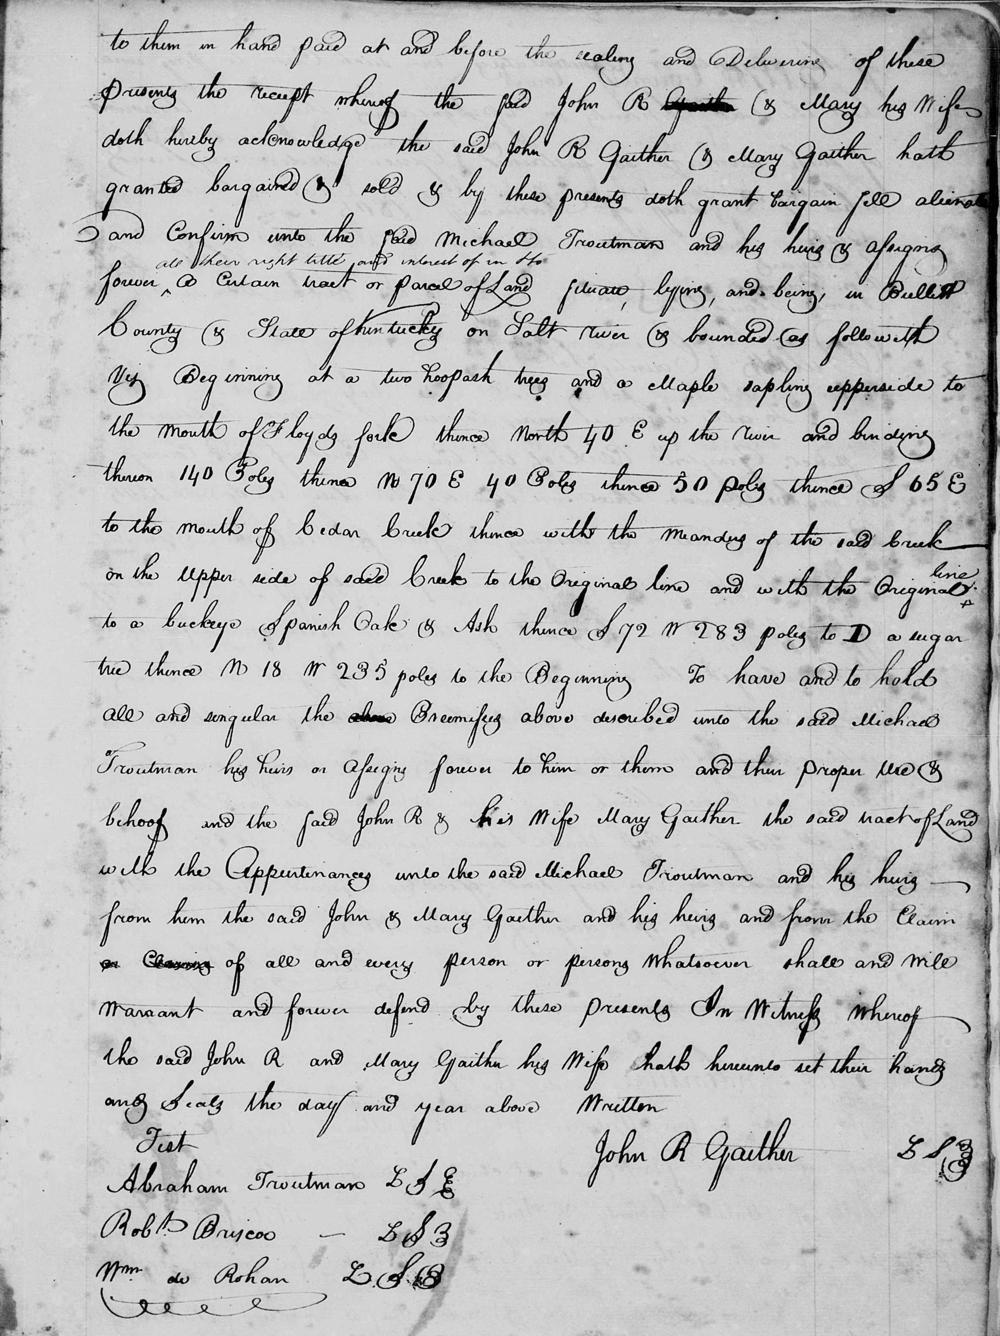 to them in hand paid at and before the sealing and Delivering of these
presents the receipt whereof the said John R Gaither & Mary his Wife
doth hereby acknowledge the said John R Gaither & Mary Gaither hath
granted bargained & sold & by these presents doth grant bargain sell alienate
and Confirm unto the said Michael Troutman and his heirs & assigns
all their right title and interest of in to
forever ^ a Certain tract or parcel of Land situate, lying, and being, in Bullitt
County & State of Kentucky on Salt river & bounded as followeth
Viz Beginning at a two hoopash trees and a Maple sapling upperside to
the mouth of Floyds fork thence North 40 E up the river and binding
thereon 140 Poles thence N 70 E 40 Poles thence 50 poles thence S 65 E
to the mouth of Cedar Creek thence with the Meanders of the said Creek
on the Upper side of said Creek to the Original line and with the Original line
to a buckeye Spanish Oak & Ash thence S 72 W 283 poles to D a sugar
tree thence N 18 W 235 poles to the Beginning To have and to hold
all and singular the above Premises above described unto the said Michael
Troutman his heirs or assigns forever to him or them and their proper Use &
behoof and the said John R & his Wife Mary Gaither the said tract of Land
with the Appurtinances unto the said Michael Troutman and his heirs
from him the said John & Mary Gaither and his heirs and from the Claim
or Claims of all and every person or persons Whatsoever shall and Will
Warrant and forever defend by these presents In Witness Whereof
the said John R and Mary Gaither his Wife hath hereunto set their hands
and Seals the day and year above Written
Test
John R Gaither L S
Abraham Troutman L S
Robt Briscoe L S
Wm de Rohan L S